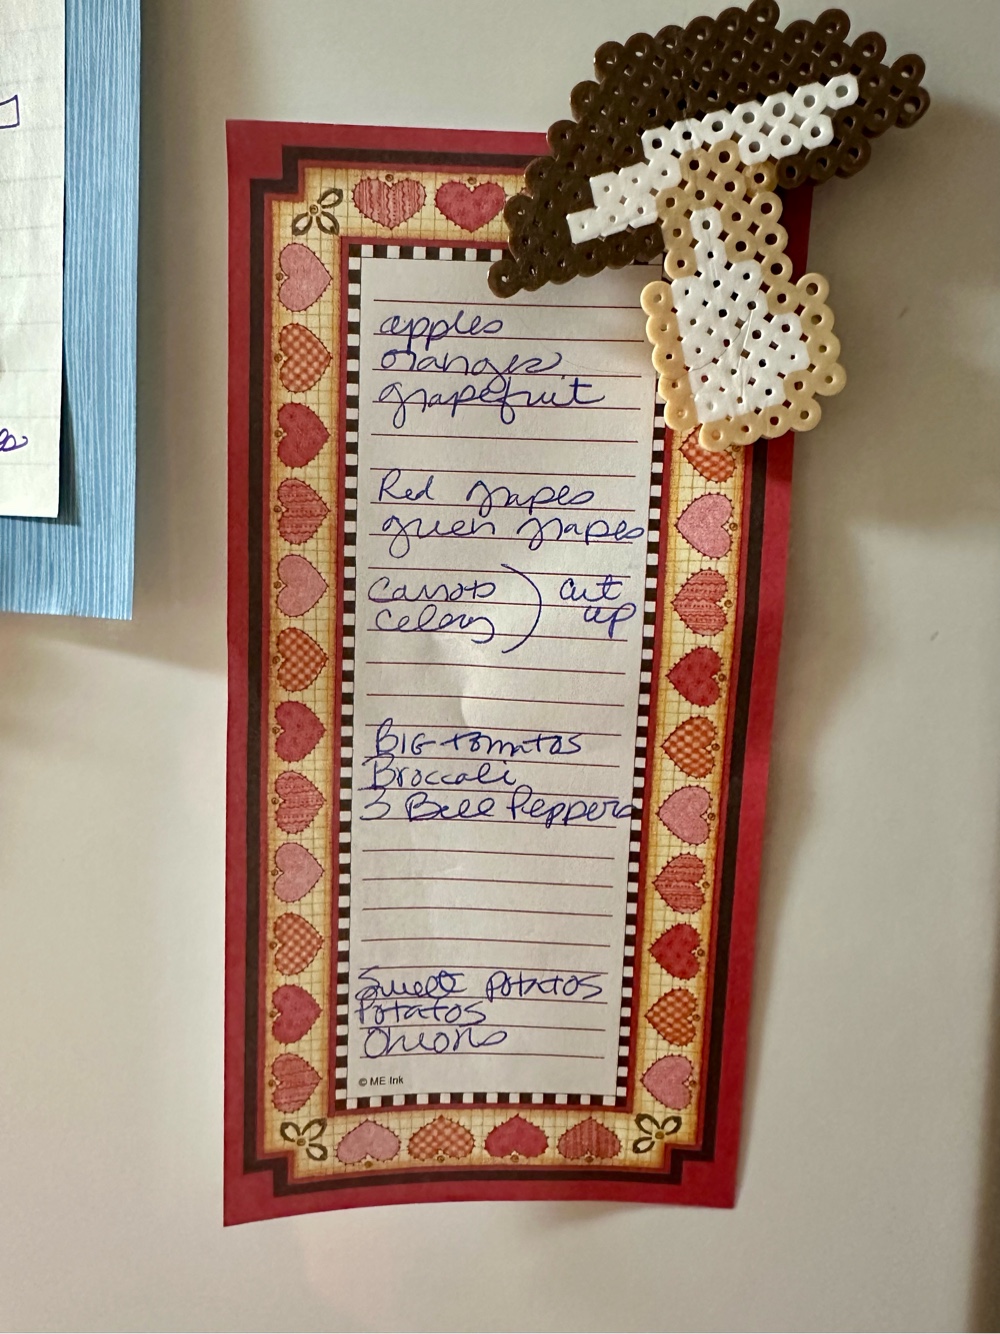 apples
oranges
grapefruit
Red grapes
green grapes
Carrots ) cut
Celery ) up
BIG tomatos
Broccoli
3 Bell Peppers
Sweet Potatos
Potatos
Onions
© ME Ink